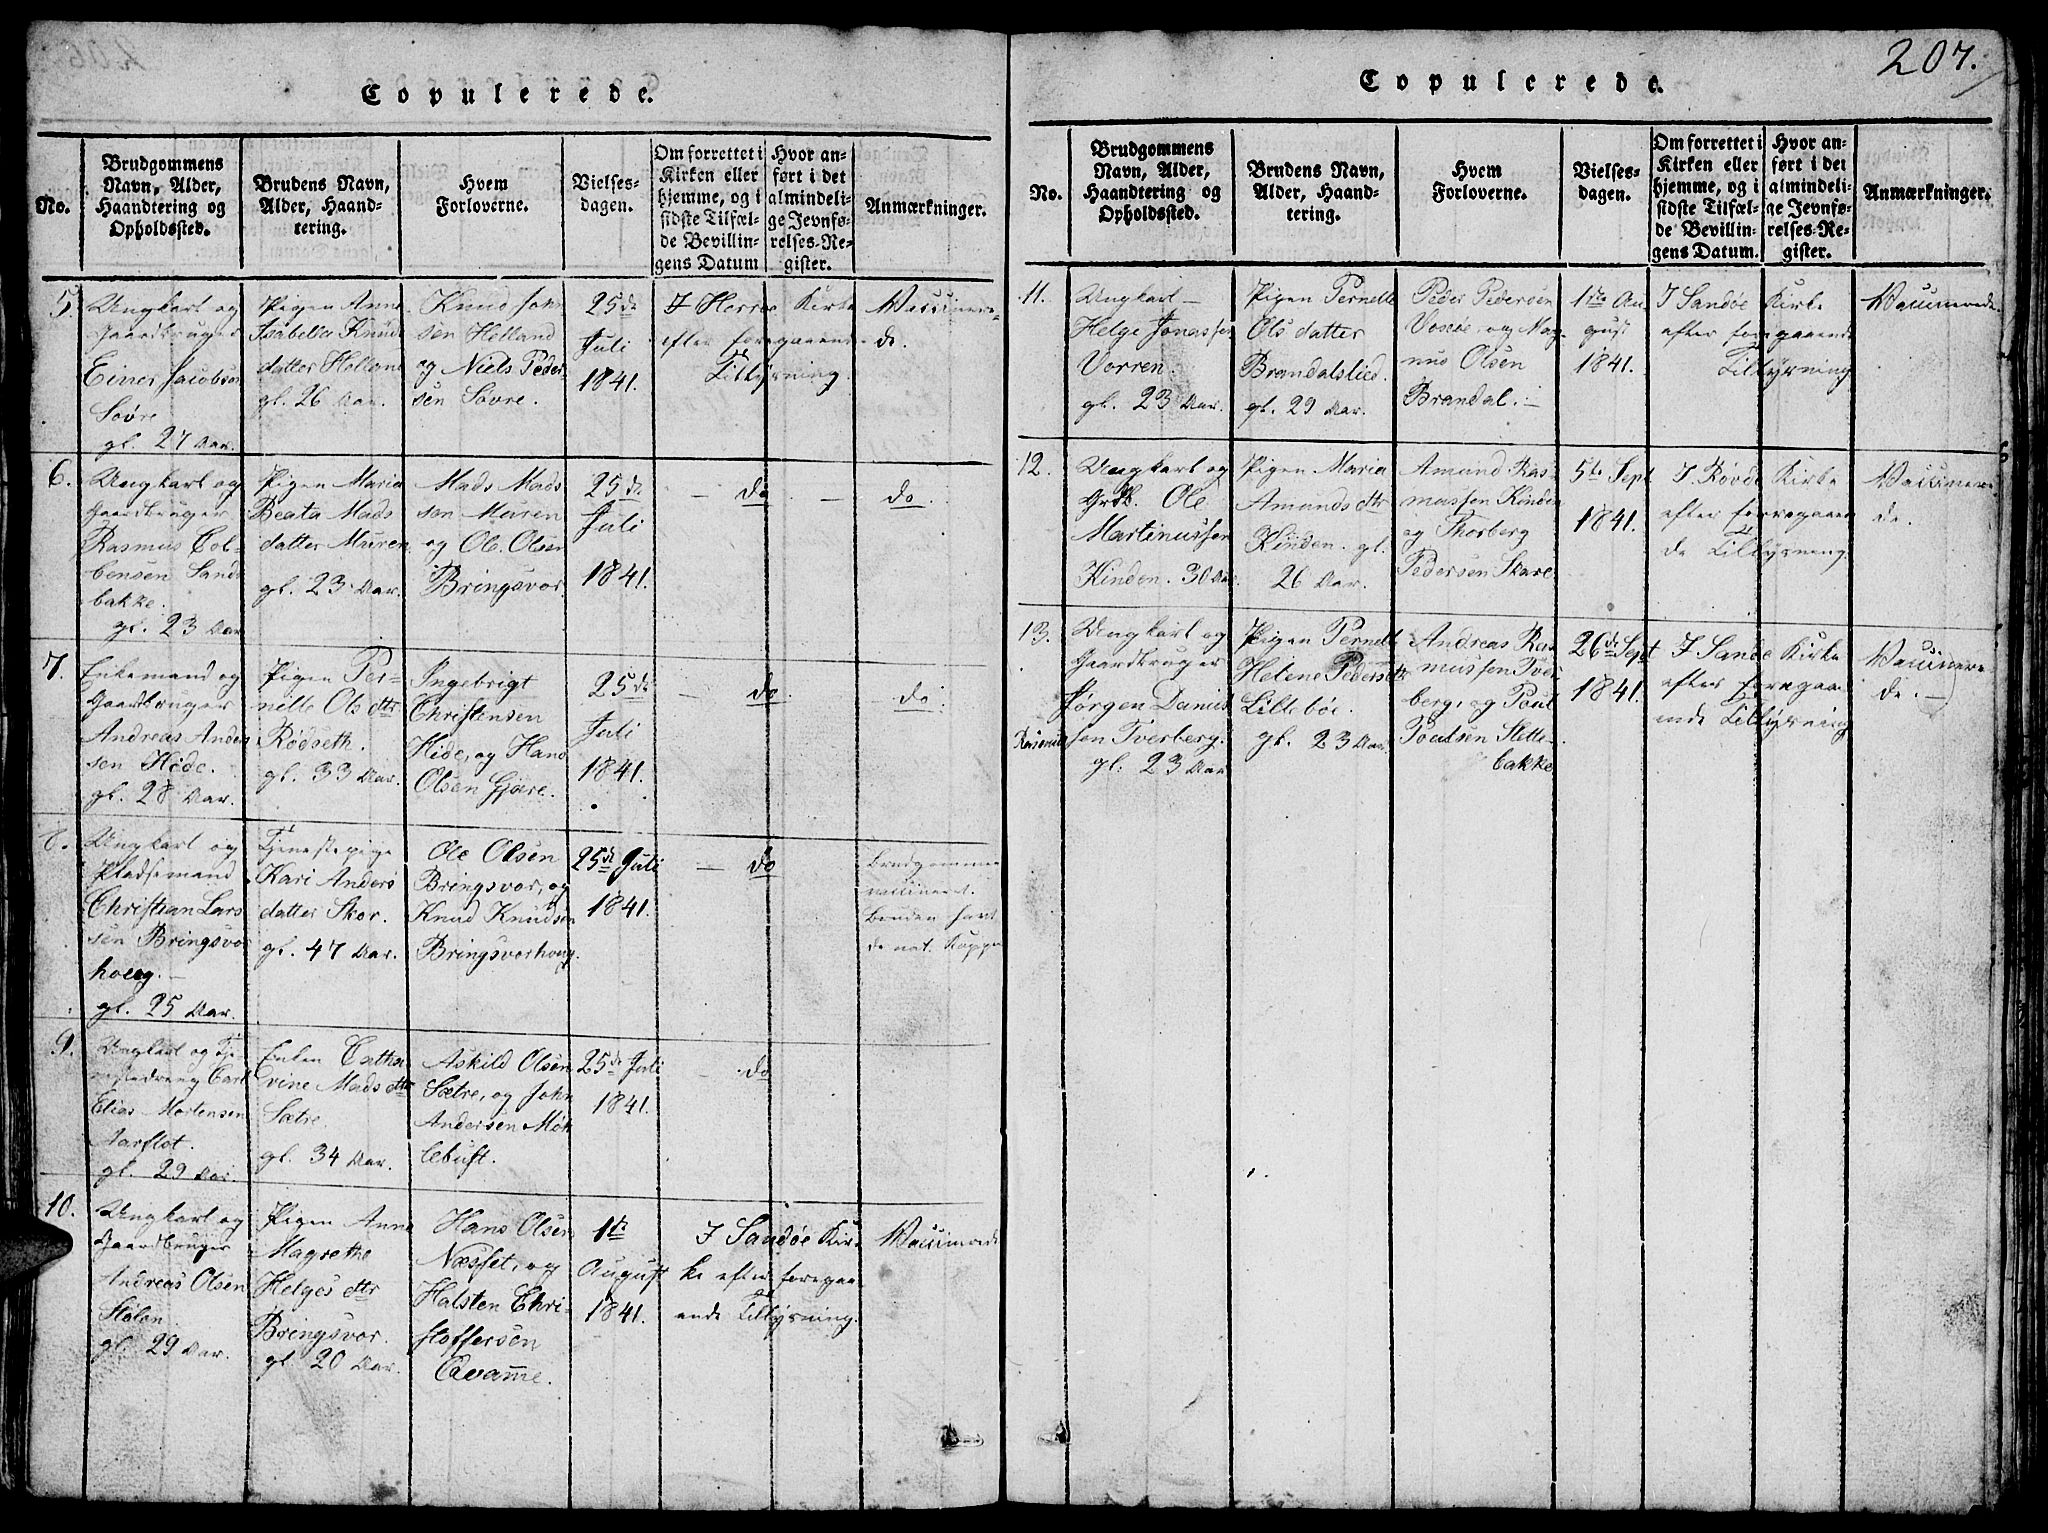 Copulerede.
No.
Brudgommens
Navn, Alder,
Haandtering og
Opholdssted.
Brudens Navn,
Alder, Haand-
tering.
Hvem
Forloverne.
Vielses-
dagen.
Om forrettet i
Kirken eller
hjemme, og i
sidste Tilfæl-
de Bevillin-
gens Datum
Hvor an-
ført i det
almindeli-
ge Jevnfø-
relses-Re-
gister.
Anmærkninger.
5.
Ungkarl og
Gaardbruger
Einer Jacobsen
Sovre
gl. 27 Aar.
Pigen Anne
Isabella Knuds
datter Helland
gl. 26 Aar.
Knud John
sen Helland
og Niels Peder-
sen Sovre.
25de
Juli
1841.
I Herröe Kirke
efter foregaaende
Tillysning.
Vaccinere-
de.
6.
Ungkarl og
Gaardbruger
Rasmus Col-
bensen Sands
bakke.
gl. 23 Aar
Pigen Maria
Beata Mads
datter Mauren
gl. 23 Aar.
Mads Mads
sen Mauren
og Ole Olsen
Bringsvor
25de
Juli
1841.
- do -
do.
7.
Enkemand og
Gaardbruger
Andreas Anders
sen Hide.
gl. 28 Aar.
Pigen Per-
nelle Ols dtr
Rödseth.
gl. 33 Aar.
Ingebrigt
Christensen
Hide, og Hans
Olsen Gjære.
25de
Juli
1841.
- do.
do.
8.
Ungkarl og
Pladsemand
Christian Lars
sen Bringsvor
houg. -
gl. 25 Aar.
Tjenestepige
Kari Anders
datter Skor.
gl. 47 Aar.
Ole Olsen
Bringsvor, og
Knud Knudsen
Bringsvorhoug.
25de Juli
1841.
- do
Brudgommen
vaccineret.
Bruden havt
de nat. Kopper
9.
Ungkarl og Tje-
nestedreng Carl
Elias Mortensen
Aarflot.
gl. 29 Aar.
Enken Catha
rine Mads dtr
Sætre.
gl. 34 Aar.
Askild Olsen
Sætre, og John
Andersen Mök
lebust.
25de Juli
1841.
- do
10.
Ungkarl og
Gaardbruger
Andreas Olsen
Stölen.
gl. 29 Aar.
Pigen Anne
Magrethe
Helges dtr
Bringsvor.
gl. 20 Aar.
Hans Olsen
Næsset, og
Halsten Chri-
stoffersen
Qvamme.
1te
August
1841.
I Sandöe Kir-
ke efter foregaa-
ende Tillysning.
Vaccinerede
207.
Copulerede.
No.
Brudgommens
Navn, Alder,
Haandtering og
Opholdssted.
Brudens Navn,
Alder, Haand-
tering.
Hvem
Forloverne.
Vielses-
dagen.
Om forrettet i
Kirken eller
hjemme, og i
sidste Tilfæl-
de Bevillin-
gens Datum.
Hvor an-
ført i det
almindeli-
ge Jevnfø-
relses-Re-
gister.
Anmærkninger.
11.
Ungkarl -
Helge Jonassen
Vorren.
gl. 23 Aar.
Pigen Pernelle
Ols datter
Brandalslied.
gl. 29 Aar.
Peder Pedersen
Voxöe, og Mag-
nus Olsen
Brandal. -
1ste Au
gust
1841.
I Sandöe Kirke
efter foregaaende
Tillysning
Vaccinerede
12.
Ungkarl og
Grdb. Ole
Martinussen
Kinden. 30 Aar.
Pigen Maria
Amunds dtr
Kinden. gl.
26 Aar.
Amund Ras-
mussen Kinden
og Thorberg
Pedersen Skare
5te Sept
1841.
I Rövde Kirke
efter foregaaen
de Tillysning.
Vaccinere
de.
13.
Ungkarl og
Gaardbruger
Jörgen Danius
sen Tverberg.
gl. 23 Aar
Pigen Pernelle
Helene Peders dtr
Lilleböe.
gl. 23 Aar.
Andreas Ras
mussen Tver
berg, og Poul
Poulsen Slette-
bakke
26de Sept
1841.
I Sande Kirke
efter foregaa
ende Tillysning
Vaccinere
de. -